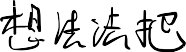 想法法把